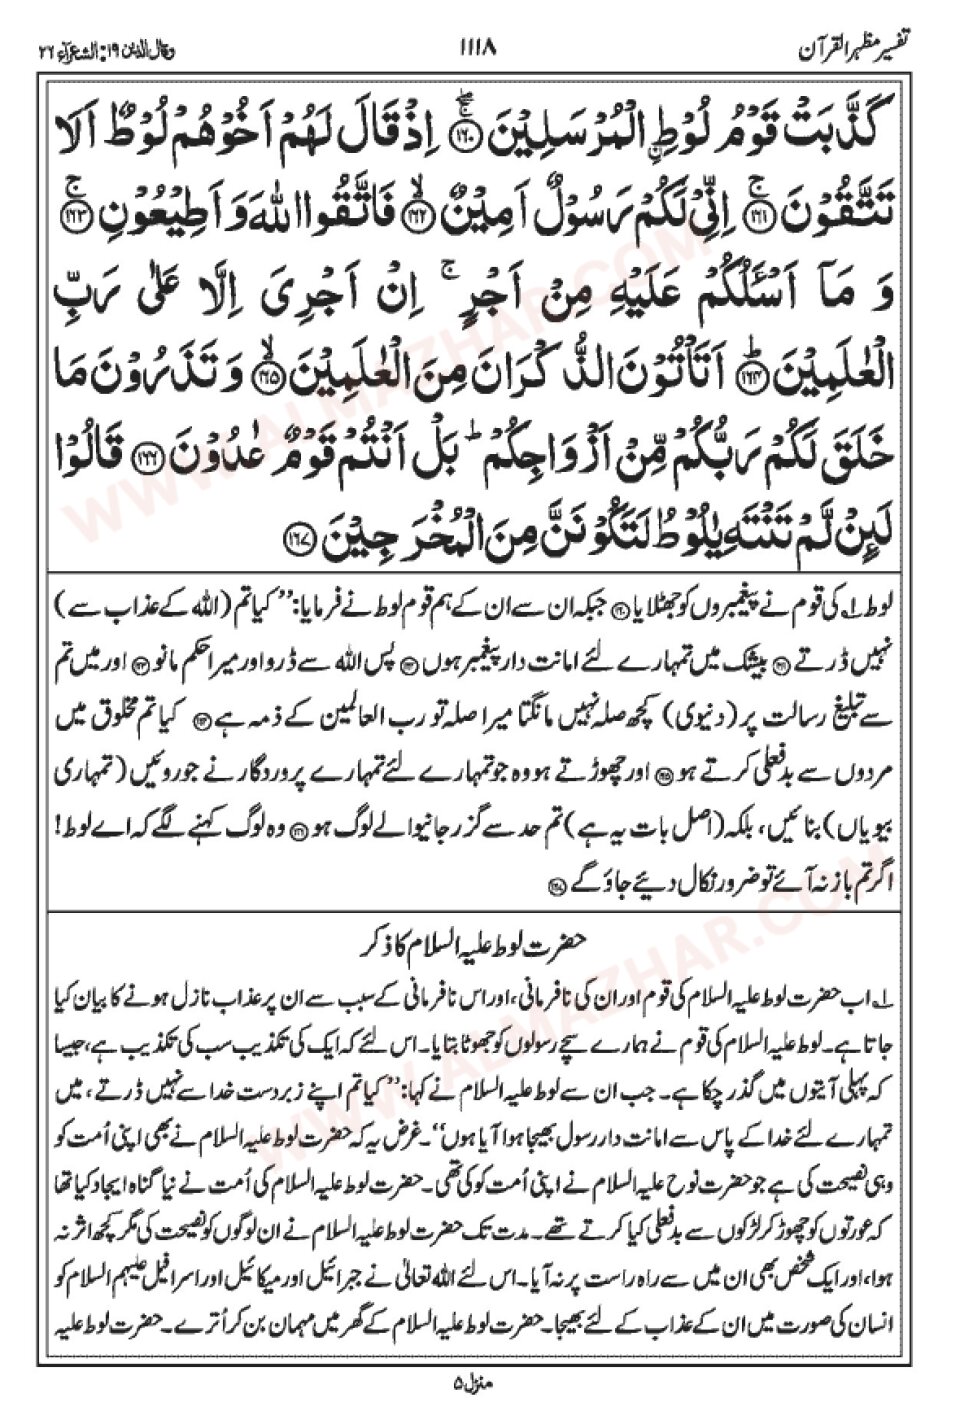 تفسیر مظہر القرآن
۱۱۱۸
وقال الذین ۱۹: الشعرآء ۲۶
كَذَّبَتْ قَوْمُ لُوْطِ ۨالْمُرْسَلِيْنَ ۝۱۶۰ۚۖ اِذْ قَالَ لَهُمْ اَخُوْهُمْ لُوْطٌ اَلَا
تَتَّقُوْنَ ۝۱۶۱ۚ اِنِّىْ لَكُمْ رَسُوْلٌ اَمِيْنٌ ۝۱۶۲ۙ فَاتَّقُوا اللّٰهَ وَ اَطِيْعُوْنِ ۝۱۶۳ۚ
وَ مَاۤ اَسْـَٔلُكُمْ عَلَيْهِ مِنْ اَجْرٍ ۚ اِنْ اَجْرِىَ اِلَّا عَلٰى رَبِّ
الْعٰلَمِيْنَ ۝۱۶۴ؕ اَتَاْتُوْنَ الذُّكْرَانَ مِنَ الْعٰلَمِيْنَ ۝۱۶۵ۙ وَ تَذَرُوْنَ مَا
خَلَقَ لَكُمْ رَبُّكُمْ مِّنْ اَزْوَاجِكُمْ ؕ بَلْ اَنْتُمْ قَوْمٌ عٰدُوْنَ ۝۱۶۶ قَالُوْا
لَىِٕنْ لَّمْ تَنْتَهِ يٰلُوْطُ لَتَكُوْنَنَّ مِنَ الْمُخْرَجِيْنَ ۝۱۶۷
لوط ۱؎ کی قوم نے پیغمبروں کو جھٹلایا ۝۱۶۰ جبکہ ان سے ان کے ہم قوم لوط نے فرمایا: ’’کیا تم (اللہ کے عذاب سے)
نہیں ڈرتے ۝۱۶۱ بیشک میں تمہارے لئے امانت دار پیغمبر ہوں ۝۱۶۲ پس اللہ سے ڈرو اور میرا حکم مانو ۝۱۶۳ اور میں تم
سے تبلیغ رسالت پر (دنیوی) کچھ صلہ نہیں مانگتا میرا صلہ تو رب العالمین کے ذمہ ہے ۝۱۶۴ کیا تم مخلوق میں
مردوں سے بدفعلی کرتے ہو ۝۱۶۵ اور چھوڑتے ہو وہ جو تمہارے لئے تمہارے پروردگار نے جوروئیں (تمہاری
بیویاں) بنائیں، بلکہ (اصل بات یہ ہے) تم حد سے گزر جانیوالے لوگ ہو ۝۱۶۶ وہ لوگ کہنے لگے کہ اے لوط!
اگر تم باز نہ آئے تو ضرور نکال دیئے جاؤ گے ۝۱۶۷
حضرت لوط علیہ السلام کا ذکر
۱؎ اب حضرت لوط علیہ السلام کی قوم اور ان کی نافرمانی، اور اس نافرمانی کے سبب سے ان پر عذاب نازل ہونے کا بیان کیا
جاتا ہے۔ لوط علیہ السلام کی قوم نے ہمارے سچے رسولوں کو جھوٹا بتایا۔ اس لئے کہ ایک کی تکذیب سب کی تکذیب ہے، جیسا
کہ پہلی آیتوں میں گذر چکا ہے۔ جب ان سے لوط علیہ السلام نے کہا: ’’کیا تم اپنے زبردست خدا سے نہیں ڈرتے، میں
تمہارے لئے خدا کے پاس سے امانت دار رسول بھیجا ہوا آیا ہوں‘‘۔ غرض یہ کہ حضرت لوط علیہ السلام نے بھی اپنی اُمت کو
وہی نصیحت کی ہے جو حضرت نوح علیہ السلام نے اپنی اُمت کو کی تھی۔ حضرت لوط علیہ السلام کی اُمت نے نیا گناہ ایجاد کیا تھا
کہ عورتوں کو چھوڑ کر لڑکوں سے بدفعلی کیا کرتے تھے۔ مدت تک حضرت لوط علیہ السلام نے ان لوگوں کو نصیحت کی مگر کچھ اثر نہ
ہوا، اور ایک شخص بھی ان میں سے راہ راست پر نہ آیا۔ اس لئے اللہ تعالیٰ نے جبرائیل اور میکائیل اور اسرافیل علیہم السلام کو
انسان کی صورت میں ان کے عذاب کے لئے بھیجا۔ حضرت لوط علیہ السلام کے گھر میں مہمان بن کر اُترے۔ حضرت لوط علیہ
منزل ۵
WWW.ALMAZHAR.COM
WWW.ALMAZHAR.COM